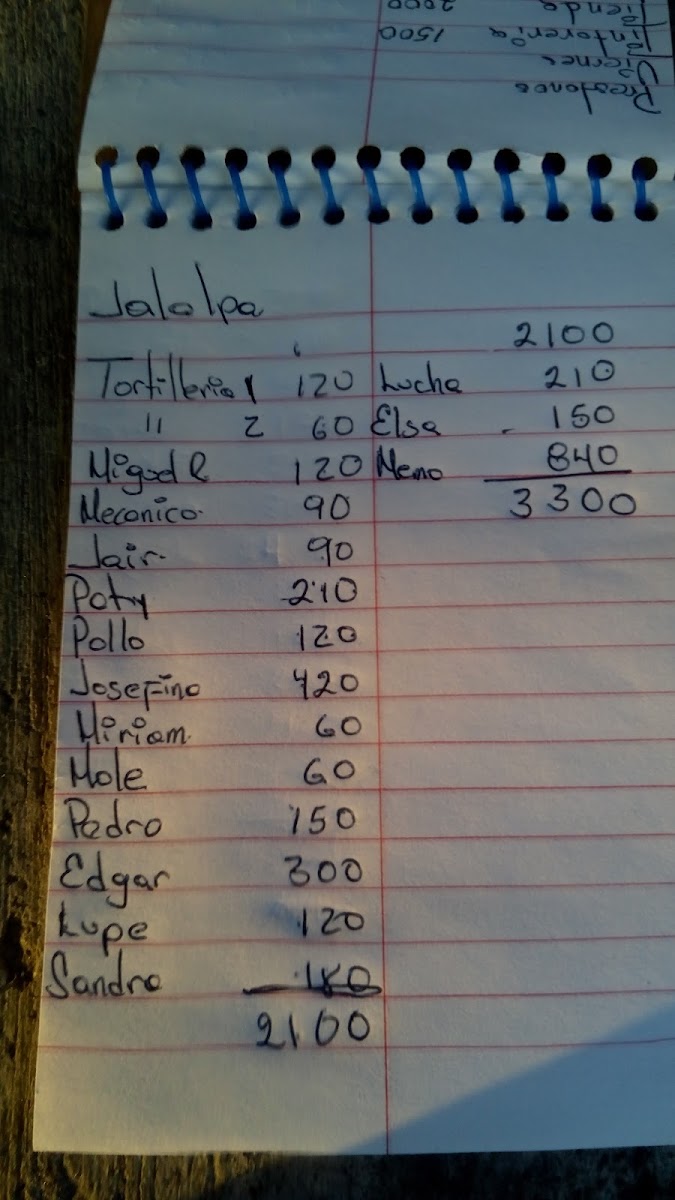 Prestanos
Viernes
Tintoreria 1500
Tienda 2000
Jalalpa
Tortilleria 1 120
" 2 60
Miguel R 120
Mecanico. 90
Jair 90
Paty 210
Pollo 120
Josefina 420
Miriam 60
Mole 60
Pedro 150
Edgar 300
Lupe 120
Sandra 180
2100
2100
Lucha 210
Elsa 150
Meno 840
3300